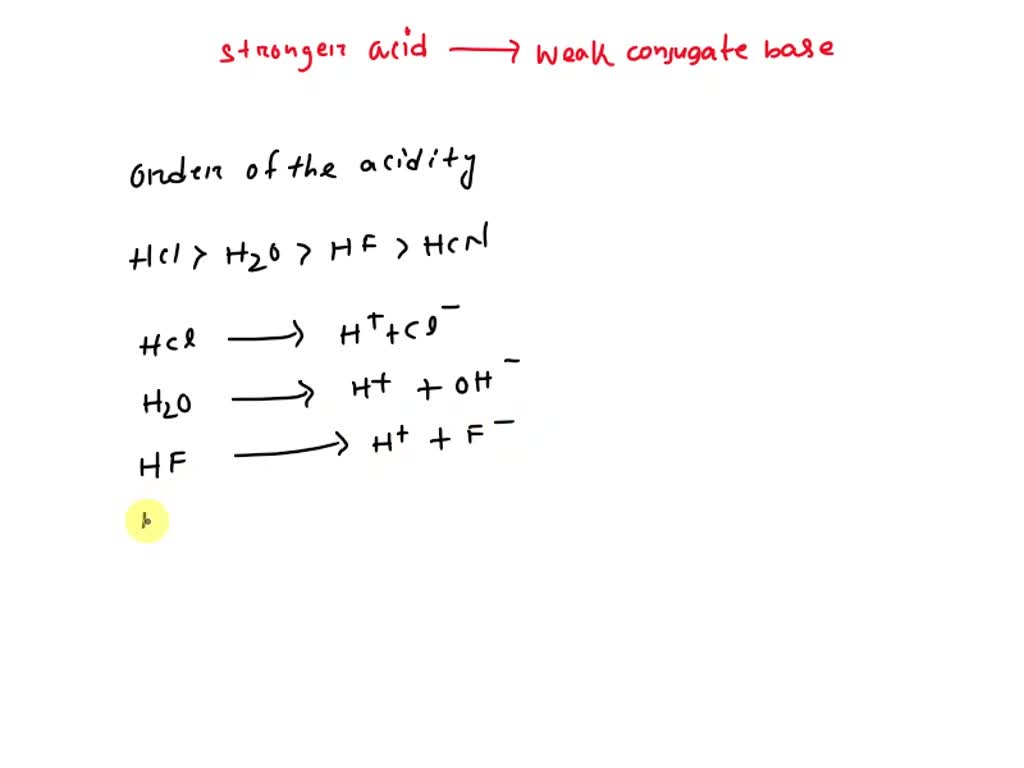 stronger acid ⟶ weak conjugate base
order of the acidity
HCl > H₂O > HF > HCN
HCl ⟶ H⁺ + Cl⁻
H₂O ⟶ H⁺ + OH⁻
HF ⟶ H⁺ + F⁻